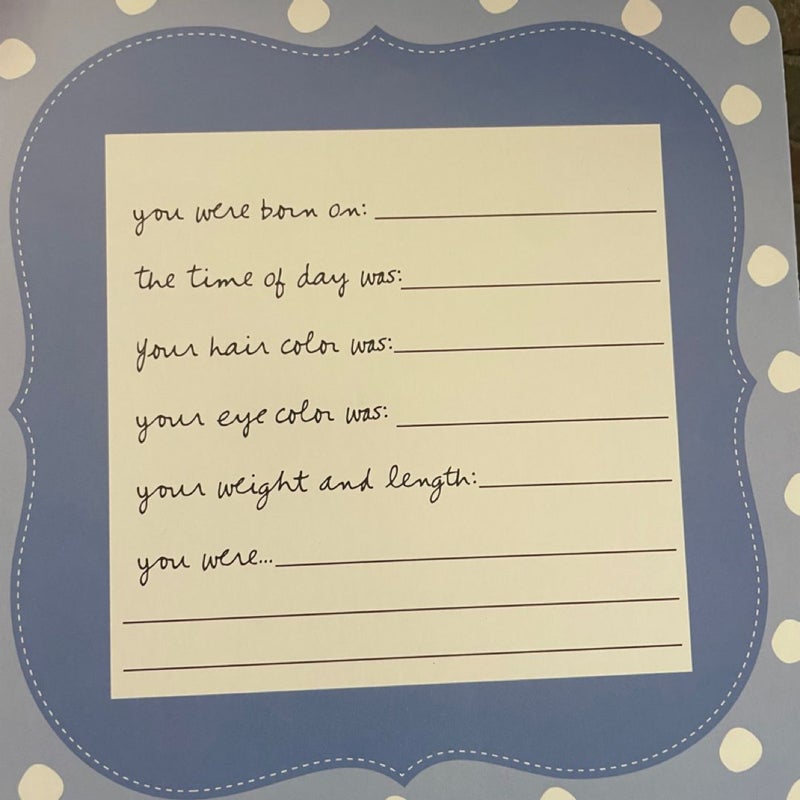 you were born on:
the time of day was:
your hair color was:
your eye color was:
your weight and length:
you were...